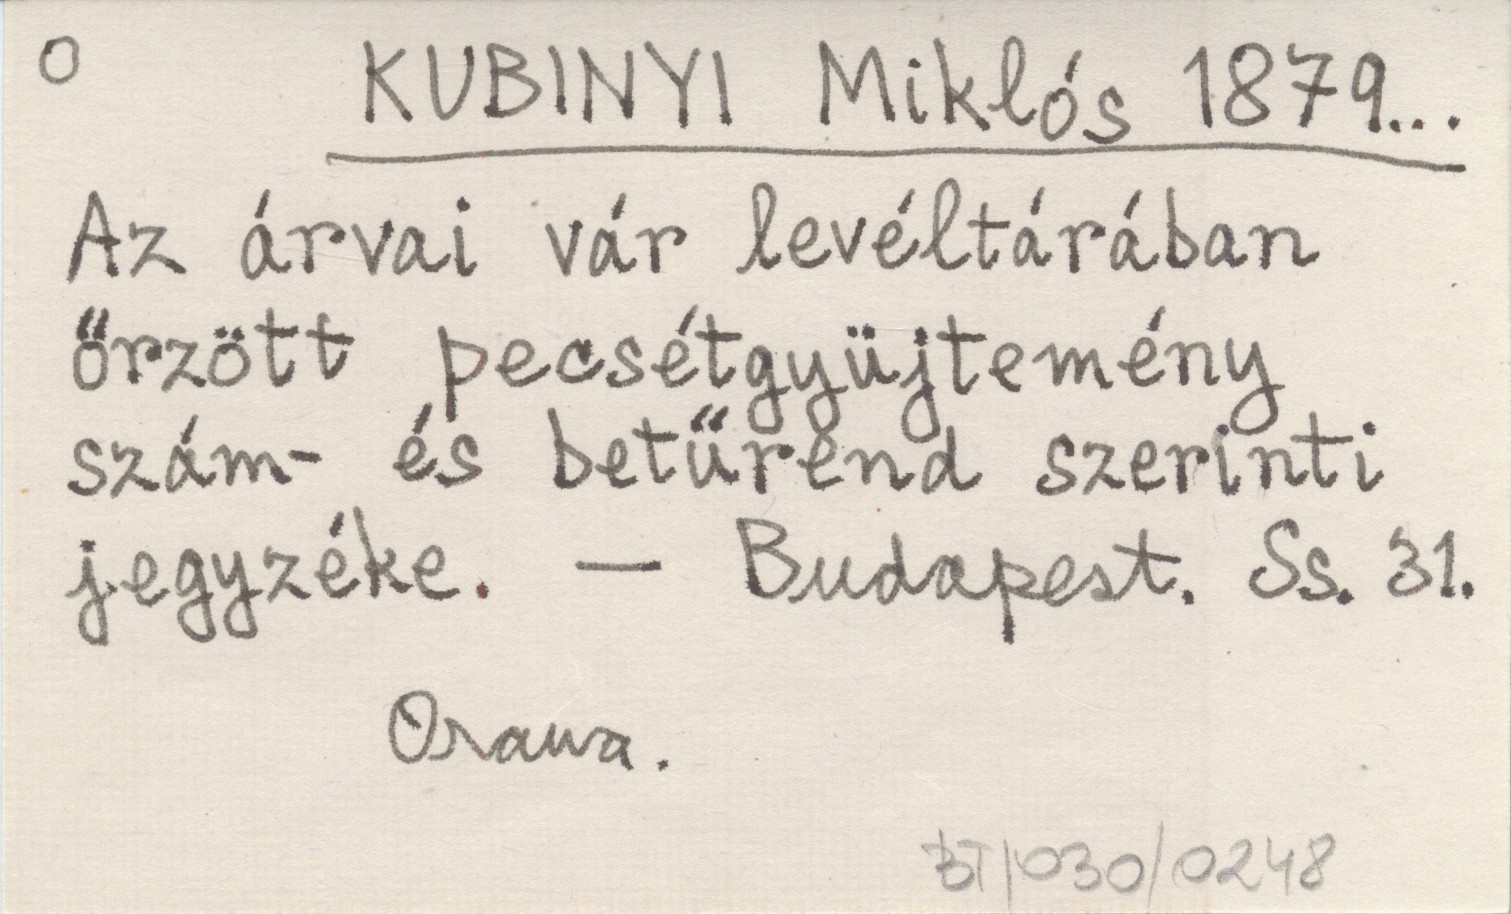 O
KUBINYI Miklós 1879...
Az árvai vár levéltárában
őrzött pecsétgyüjtemény
szám- és betűrend szerinti
jegyzéke. — Budapest. Ss. 31.
Orawa.
BT/030/0248